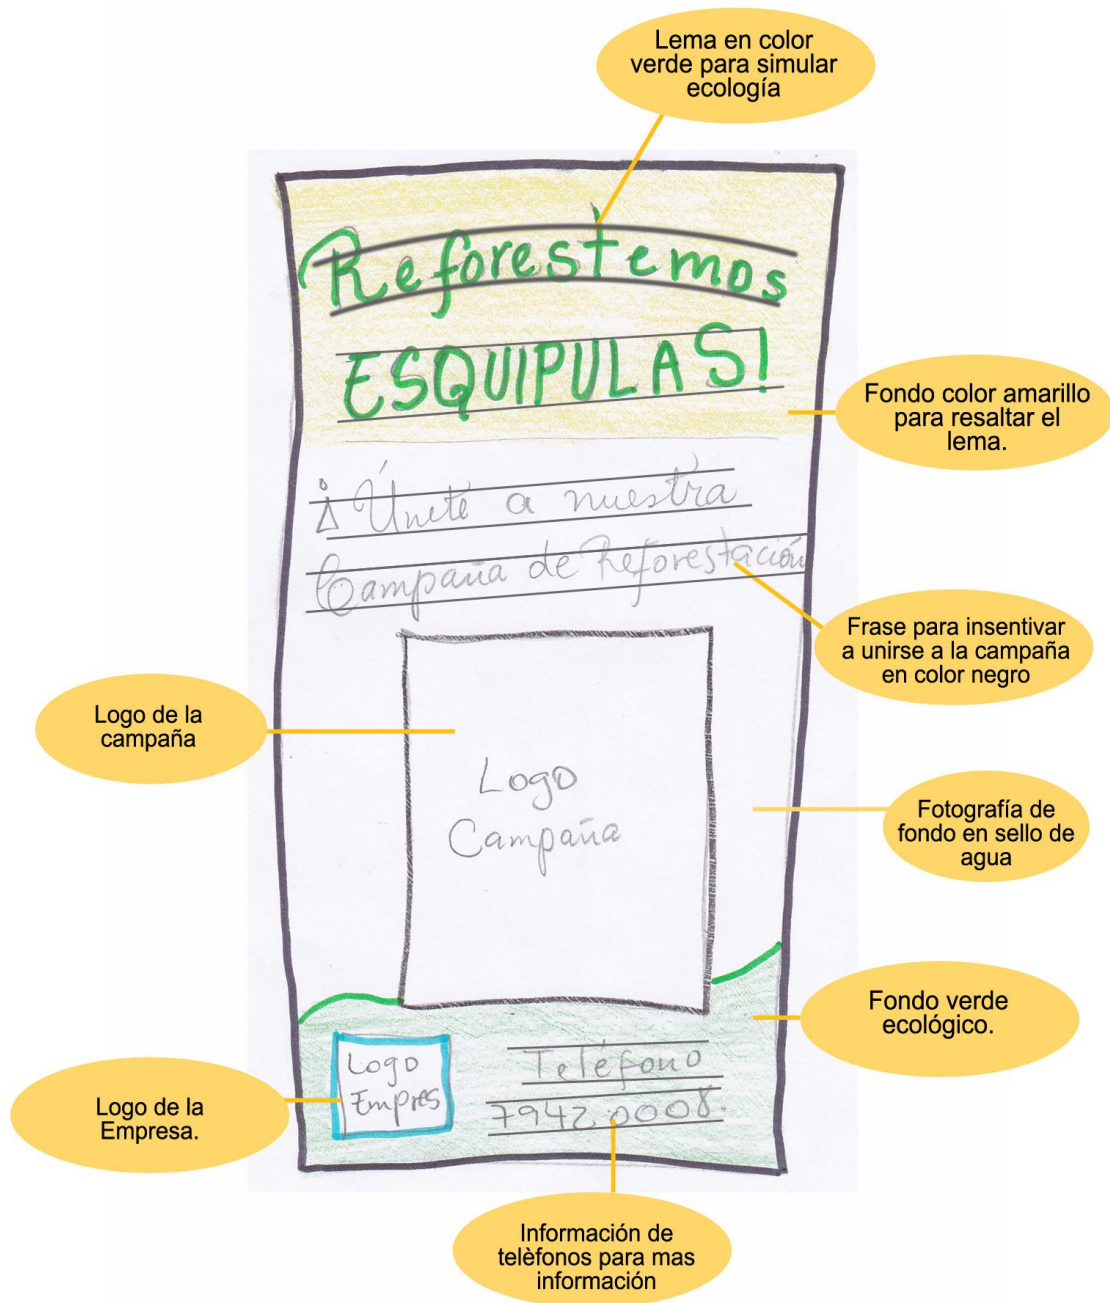 Lema en color
verde para simular
ecología
Reforestemos
ESQUIPULAS!
Fondo color amarillo
para resaltar el
lema.
¡Únete a nuestra
Campaña de Reforestación
Frase para insentivar
a unirse a la campaña
en color negro
Logo de la
campaña
Logo
Campaña
Fotografía de
fondo en sello de
agua
Fondo verde
ecológico.
Logo
Empres
Teléfono
7942 0008.
Logo de la
Empresa.
Información de
telèfonos para mas
información